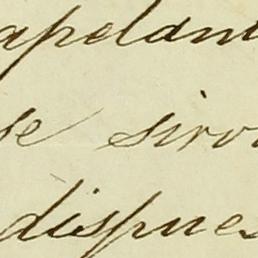 apelant
se sirv
dispues